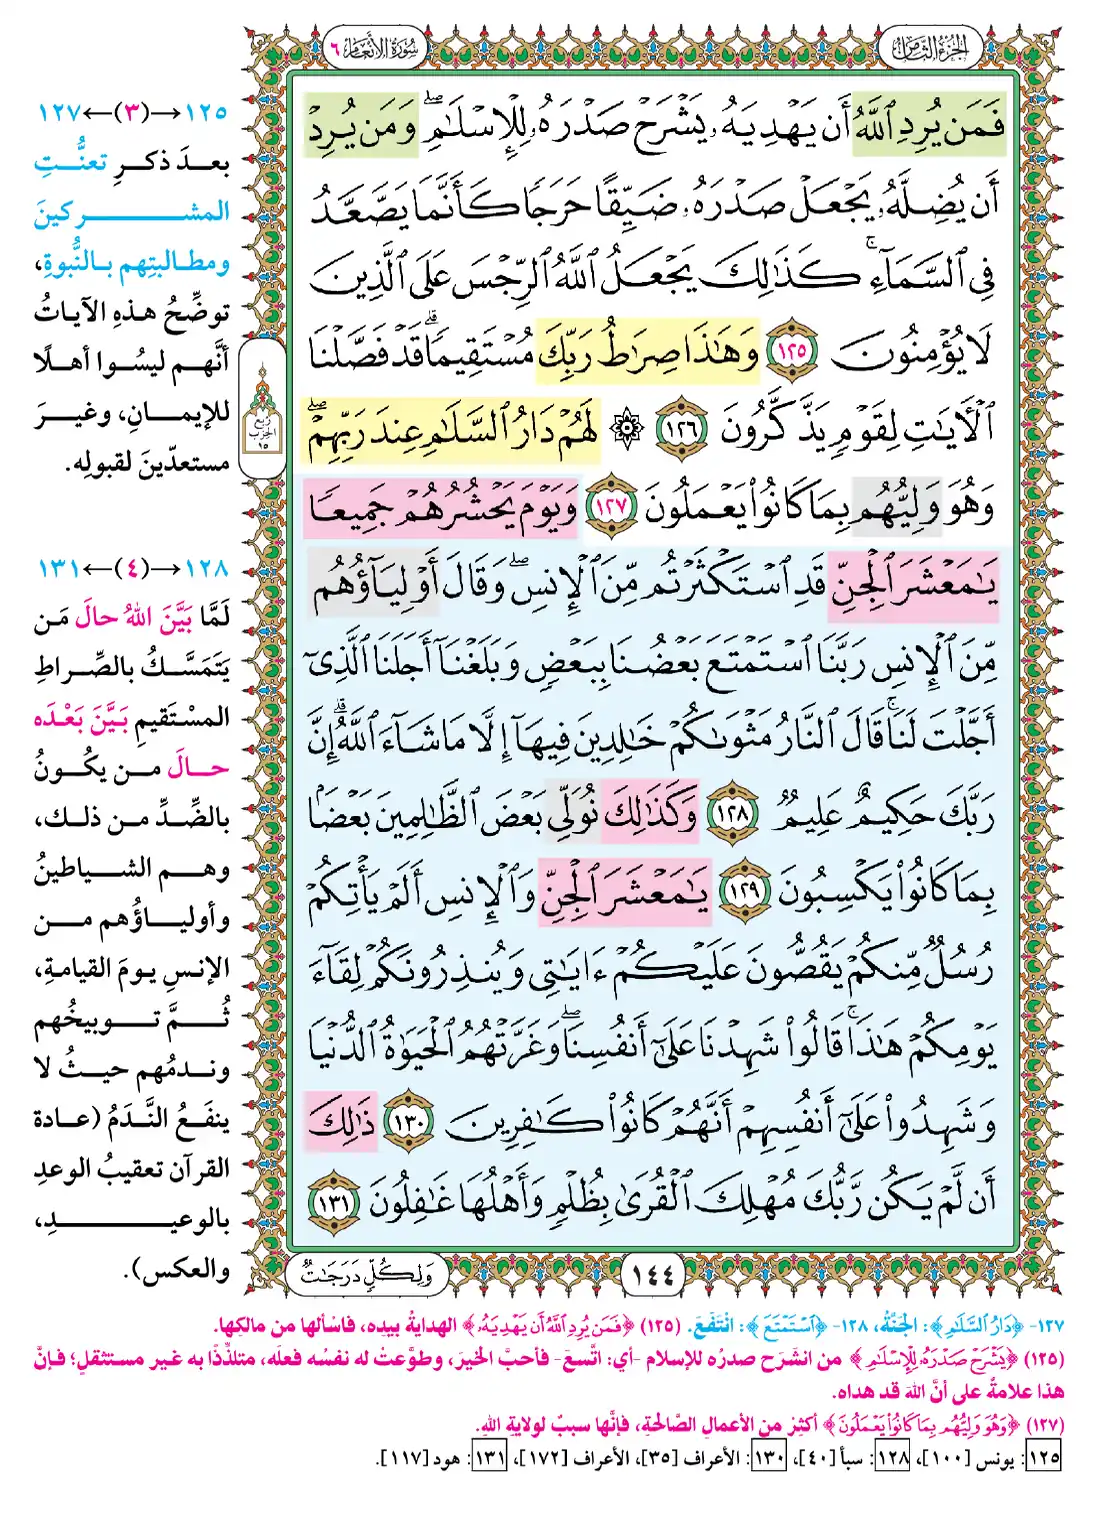 الجزء الثامن
سورة الأنعام ٦
فَمَن يُرِدِ ٱللَّهُ أَن يَهْدِيَهُۥ يَشْرَحْ صَدْرَهُۥ لِلْإِسْلَـٰمِۖ وَمَن يُرِدْ
أَن يُضِلَّهُۥ يَجْعَلْ صَدْرَهُۥ ضَيِّقًا حَرَجًا كَأَنَّمَا يَصَّعَّدُ
فِى ٱلسَّمَآءِۚ كَذَٰلِكَ يَجْعَلُ ٱللَّهُ ٱلرِّجْسَ عَلَى ٱلَّذِينَ
لَا يُؤْمِنُونَ ١٢٥ وَهَـٰذَا صِرَٰطُ رَبِّكَ مُسْتَقِيمًاۗ قَدْ فَصَّلْنَا
ٱلْـَٔايَـٰتِ لِقَوْمٍ يَذَّكَّرُونَ ١٢٦ ۞ لَهُمْ دَارُ ٱلسَّلَـٰمِ عِندَ رَبِّهِمْۖ
وَهُوَ وَلِيُّهُم بِمَا كَانُوا۟ يَعْمَلُونَ ١٢٧ وَيَوْمَ يَحْشُرُهُمْ جَمِيعًا
يَـٰمَعْشَرَ ٱلْجِنِّ قَدِ ٱسْتَكْثَرْتُم مِّنَ ٱلْإِنسِۖ وَقَالَ أَوْلِيَآؤُهُم
مِّنَ ٱلْإِنسِ رَبَّنَا ٱسْتَمْتَعَ بَعْضُنَا بِبَعْضٍ وَبَلَغْنَآ أَجَلَنَا ٱلَّذِىٓ
أَجَّلْتَ لَنَاۚ قَالَ ٱلنَّارُ مَثْوَىٰكُمْ خَـٰلِدِينَ فِيهَآ إِلَّا مَا شَآءَ ٱللَّهُۗ إِنَّ
رَبَّكَ حَكِيمٌ عَلِيمٌ ١٢٨ وَكَذَٰلِكَ نُوَلِّى بَعْضَ ٱلظَّـٰلِمِينَ بَعْضًۢا
بِمَا كَانُوا۟ يَكْسِبُونَ ١٢٩ يَـٰمَعْشَرَ ٱلْجِنِّ وَٱلْإِنسِ أَلَمْ يَأْتِكُمْ
رُسُلٌ مِّنكُمْ يَقُصُّونَ عَلَيْكُمْ ءَايَـٰتِى وَيُنذِرُونَكُمْ لِقَآءَ
يَوْمِكُمْ هَـٰذَاۚ قَالُوا۟ شَهِدْنَا عَلَىٰٓ أَنفُسِنَاۖ وَغَرَّتْهُمُ ٱلْحَيَوٰةُ ٱلدُّنْيَا
وَشَهِدُوا۟ عَلَىٰٓ أَنفُسِهِمْ أَنَّهُمْ كَانُوا۟ كَـٰفِرِينَ ١٣٠ ذَٰلِكَ
أَن لَّمْ يَكُن رَّبُّكَ مُهْلِكَ ٱلْقُرَىٰ بِظُلْمٍ وَأَهْلُهَا غَـٰفِلُونَ ١٣١
١٤٤
وَلِكُلٍّ دَرَجَـٰتٌ
ربع
الحزب
١٥
١٢٥→(٣)←١٢٧
بعدَ ذكرِ تعنُّتِ
المشركينَ
ومطالبتِهم بالنُّبوةِ،
توضِّحُ هذهِ الآياتُ
أنَّهم ليسُوا أهلًا
للإيمانِ، وغيرَ
مستعدّينَ لقبولِه.
١٢٨→(٤)←١٣١
لَمَّا بَيَّنَ اللهُ حالَ مَن
يَتَمَسَّكُ بالصِّراطِ
المسْتَقيمِ بَيَّنَ بَعْدَه
حالَ من يكُونُ
بالضِّدِّ من ذلك،
وهم الشياطينُ
وأولياؤُهم من
الإنسِ يومَ القيامةِ،
ثُمَّ توبيخُهم
وندمُهم حيثُ لا
ينفَعُ النَّدَمُ (عادة
القرآن تعقيبُ الوعدِ
بالوعيدِ،
والعكس).
١٢٧- ﴿دَارُ ٱلسَّلَـٰمِ﴾: الجَنَّةُ، ١٢٨- ﴿ٱسْتَمْتَعَ﴾: انْتَفَعَ. (١٢٥) ﴿فَمَن يُرِدِ ٱللَّهُ أَن يَهْدِيَهُۥ﴾ الهدايةُ بيدِه، فاسألها من مالكِها.
(١٢٥) ﴿يَشْرَحْ صَدْرَهُۥ لِلْإِسْلَـٰمِ﴾ من انشَرَح صدرُه للإسلام -أي: اتَّسعَ- فأحبَّ الخيرَ، وطوَّعتْ له نفسُه فعلَه، متلذِّذًا به غير مستثقلٍ؛ فإنَّ
هذا علامةٌ على أنَّ اللهَ قد هداه.
(١٢٧) ﴿وَهُوَ وَلِيُّهُم بِمَا كَانُوا۟ يَعْمَلُونَ﴾ أكثِرْ من الأعمالِ الصَّالحةِ، فإنَّها سببٌ لولايةِ اللهِ.
١٢٥: يونس [١٠٠]، ١٢٨: سبأ [٤٠]، ١٣٠: الأعراف [٣٥]، الأعراف [١٧٢]، ١٣١: هود [١١٧].